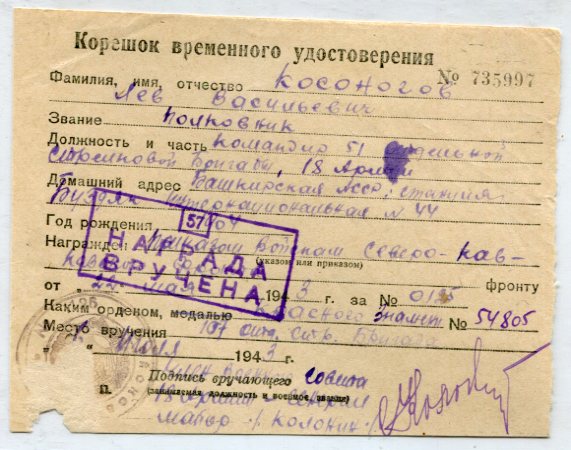 Корешок временного удостоверения
№ 735997
Фамилия, имя, отчество Косоногов
Лев Васильевич
Звание полковник
Должность и часть командир 51 отдельной
стрелковой бригады, 18 Армии
Домашний адрес Башкирская Асср, станция
Буздяк Интернациональная N 44
Год рождения
57
НАГРАДА
ВРУЧЕНА
Награжден приказом войскам Северо-Кав-
(указом или приказом)
фронту
от " 22 " мая 1943 г. за №
Каким орденом, медалью Красного Знамен № 54805
Место вручения 107 отд. стр. Бригада
" " июля 1943 г.
Член Военного Совета
П. Подпись вручающего
(занимаемая должность и воинск. звание)
18 армии генерал
майор / Колонин /